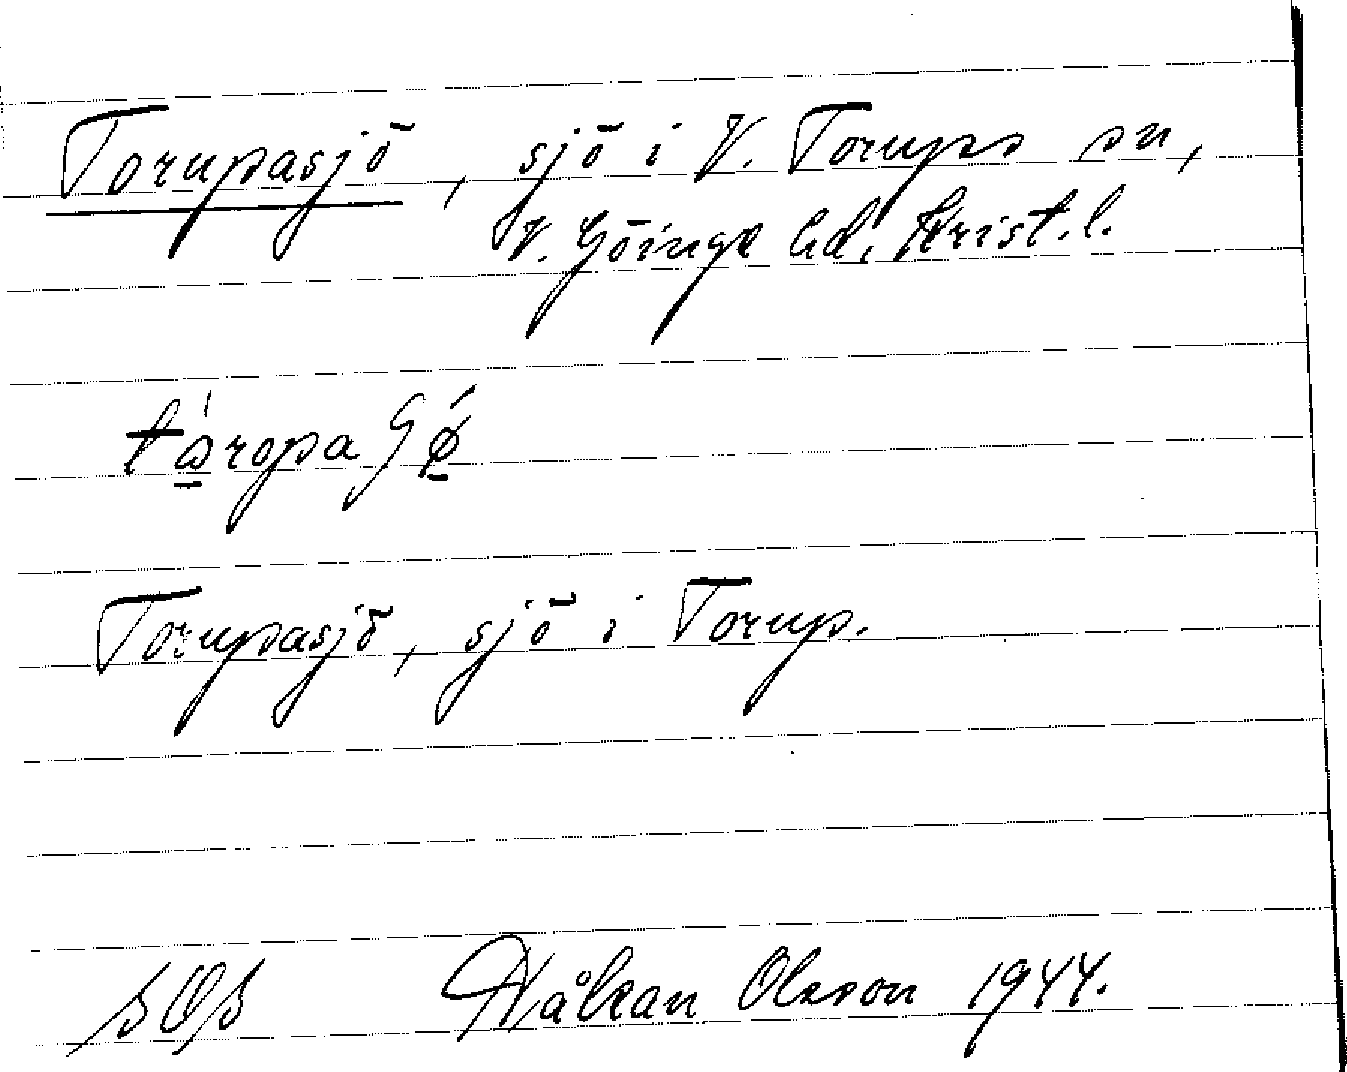 Torupasjö, sjö i V. Torups sn,
V. Göinge hd, Krist. l.
Torupasjö, sjö i Torup.
SOS Håkan Olsson 1944.